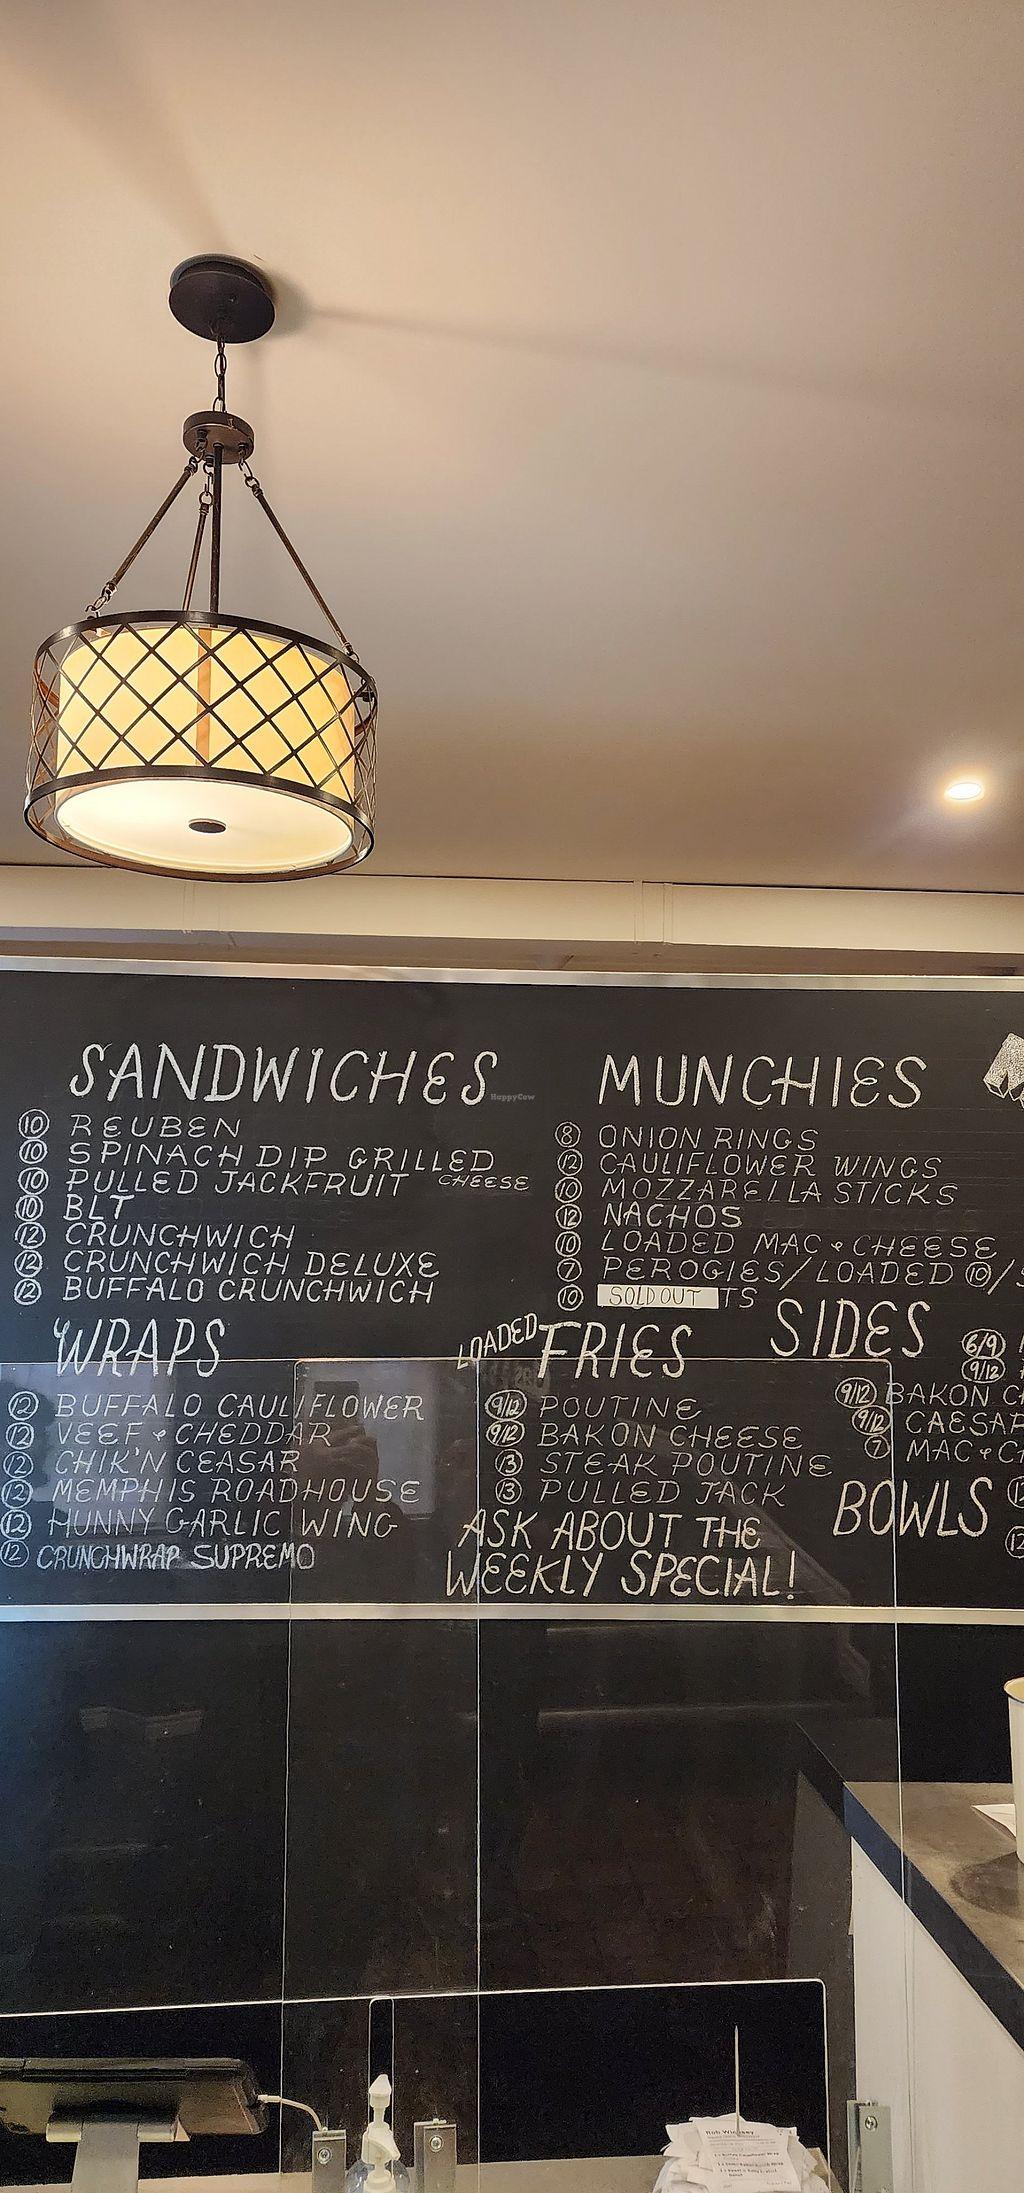 SANDWICHES
⑩ REUBEN
⑩ SPINACH DIP GRILLED CHEESE
⑩ PULLED JACKFRUIT
⑩ BLT
⑫ CRUNCHWICH
⑫ CRUNCHWICH DELUXE
⑫ BUFFALO CRUNCHWICH
HappyCow
MUNCHIES
⑧ ONION RINGS
⑫ CAULIFLOWER WINGS
⑩ MOZZARELLA STICKS
⑫ NACHOS
⑩ LOADED MAC & CHEESE
⑦ PEROGIES/LOADED ⑩/
⑩ SOLD OUT TS
WRAPS
⑫ BUFFALO CAULIFLOWER
⑫ VEEF & CHEDDAR
⑫ CHIK'N CEASAR
⑫ MEMPHIS ROADHOUSE
⑫ HUNNY GARLIC WING
⑫ CRUNCHWRAP SUPREMO
LOADED FRIES
9/12 POUTINE
9/12 BAKON CHEESE
⑬ STEAK POUTINE
⑬ PULLED JACK
ASK ABOUT THE
WEEKLY SPECIAL!
SIDES
6/9
9/12
9/12 BAKON
9/12 CAESAR
⑦ MAC &
BOWLS